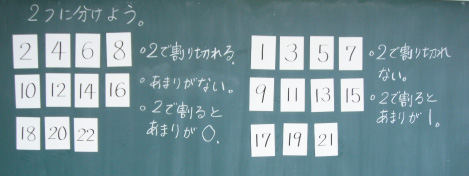 2つに分けよう。
2 4 6 8
10 12 14 16
18 20 22
。2で割り切れる。
。あまりがない。
。2で割ると
あまりが0。
1 3 5 7
9 11 13 15
17 19 21
。2で割り切れ
ない。
。2で割ると
あまりが1。